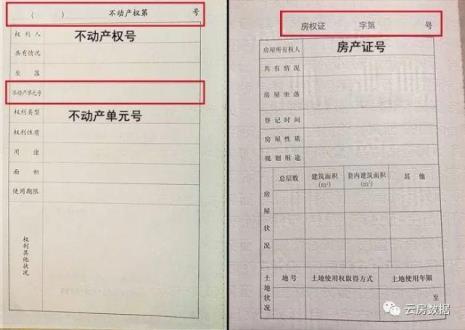 （　　）　不动产权第　　号
不动产权号
权利人
共有情况
坐落
不动产单元号
不动产单元号
权利类型
权利性质
用途
面积
使用期限
权利其他状况
房权证　　字第　　号
房产证号
房屋所有权人
共有情况
房屋坐落
登记时间
房屋性质
规划用途
房屋状况
总层数　建筑面积（m²）　套内建筑面积（m²）　其他
土地状况
地号　土地使用权取得方式　土地使用年限
至
云房数据